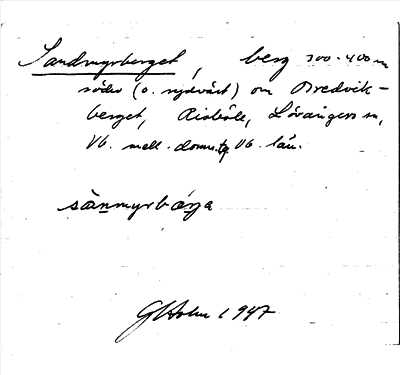 Sandmyrberget, berg 300-400 m
söder (o. sydväst) om Bredvik-
berget, Risböle, Lövångers sn,
Vb. mell. doms. Vb. län.
sännmyrbærga
GHolm 1947